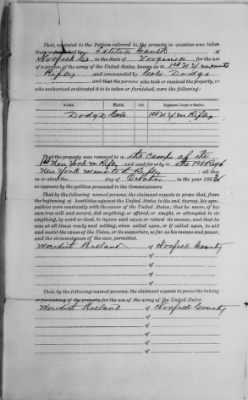 That, as stated in the Petition referred to, the property in question was taken
of
in the State of Virginia, for the use
of a portion of the army of the United States, known as 1st N.Y. mounted
Rifles and commanded by Col. Dodge
and that the persons who took or received the property, or
who authorized or directed it to be taken or furnished, were the following:
NAME. RANK. CO. Regiment, Corps or Station.
Dodge Col. 1st N.Y. M. Rifles
That the property was removed to the camps of the
1st New York M. Rifles and used for or by the 1st Regt
New York mounted Rifles; all this
on or about the day of October in the year 186
as appears by the petition presented to the Commissioners.
That by the following named persons, the claimant expects to prove that, from the
beginning of hostilities against the United States to the end thereof, his sym-
pathies were constantly with the cause of the United States; that he never, of his
own free will and accord, did anything, or offered, or sought, or attempted to do
anything, by word or deed, to injure said cause or retard its success, and that he
was at all times ready and willing, when called upon, or if called upon, to aid
and assist the cause of the Union, or its supporters, so far as his means and power,
and the circumstances of the case, permitted.
Meredith of County
of
of
of
of
of
That, by the following named persons, the claimant expects to prove the taking
or furnishing of the property for the use of the army of the United States.
Meredith of County
of
of
of
of
of